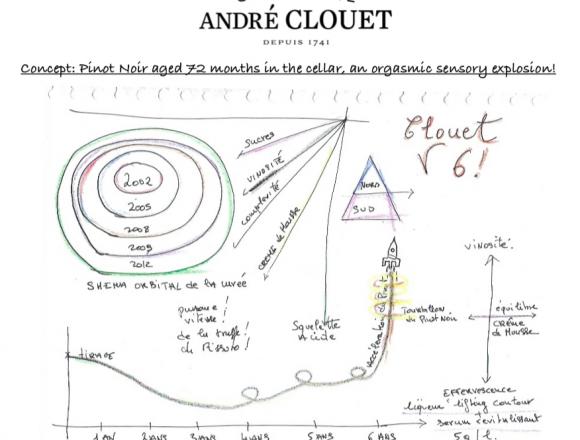 ANDRÉ CLOUET
DEPUIS 1741
Concept: Pinot Noir aged 72 months in the cellar, an orgasmic sensory explosion!
Clouet
V 6!
Sucres
VINOSITÉ
complexité
CRÈME de Mousse
2002
2005
2008
2009
2012
NORD
SUD
SHEMA ORBITAL de la cuvée
puissance!
vitesse!
de la truffe!
du Risoto!
Squelette
Acide
Accélération du Pinot
Tourbillon
du Pinot Noir
vinosité.
équilibre
CRÈME
de Mousse
EFFERVESCENCE
liqueur lifting contour
serum revitalissant
5g/l.
TIRAGE
1 AN
2 ANS
3 ANS
4 ANS
5 ANS
6 ANS